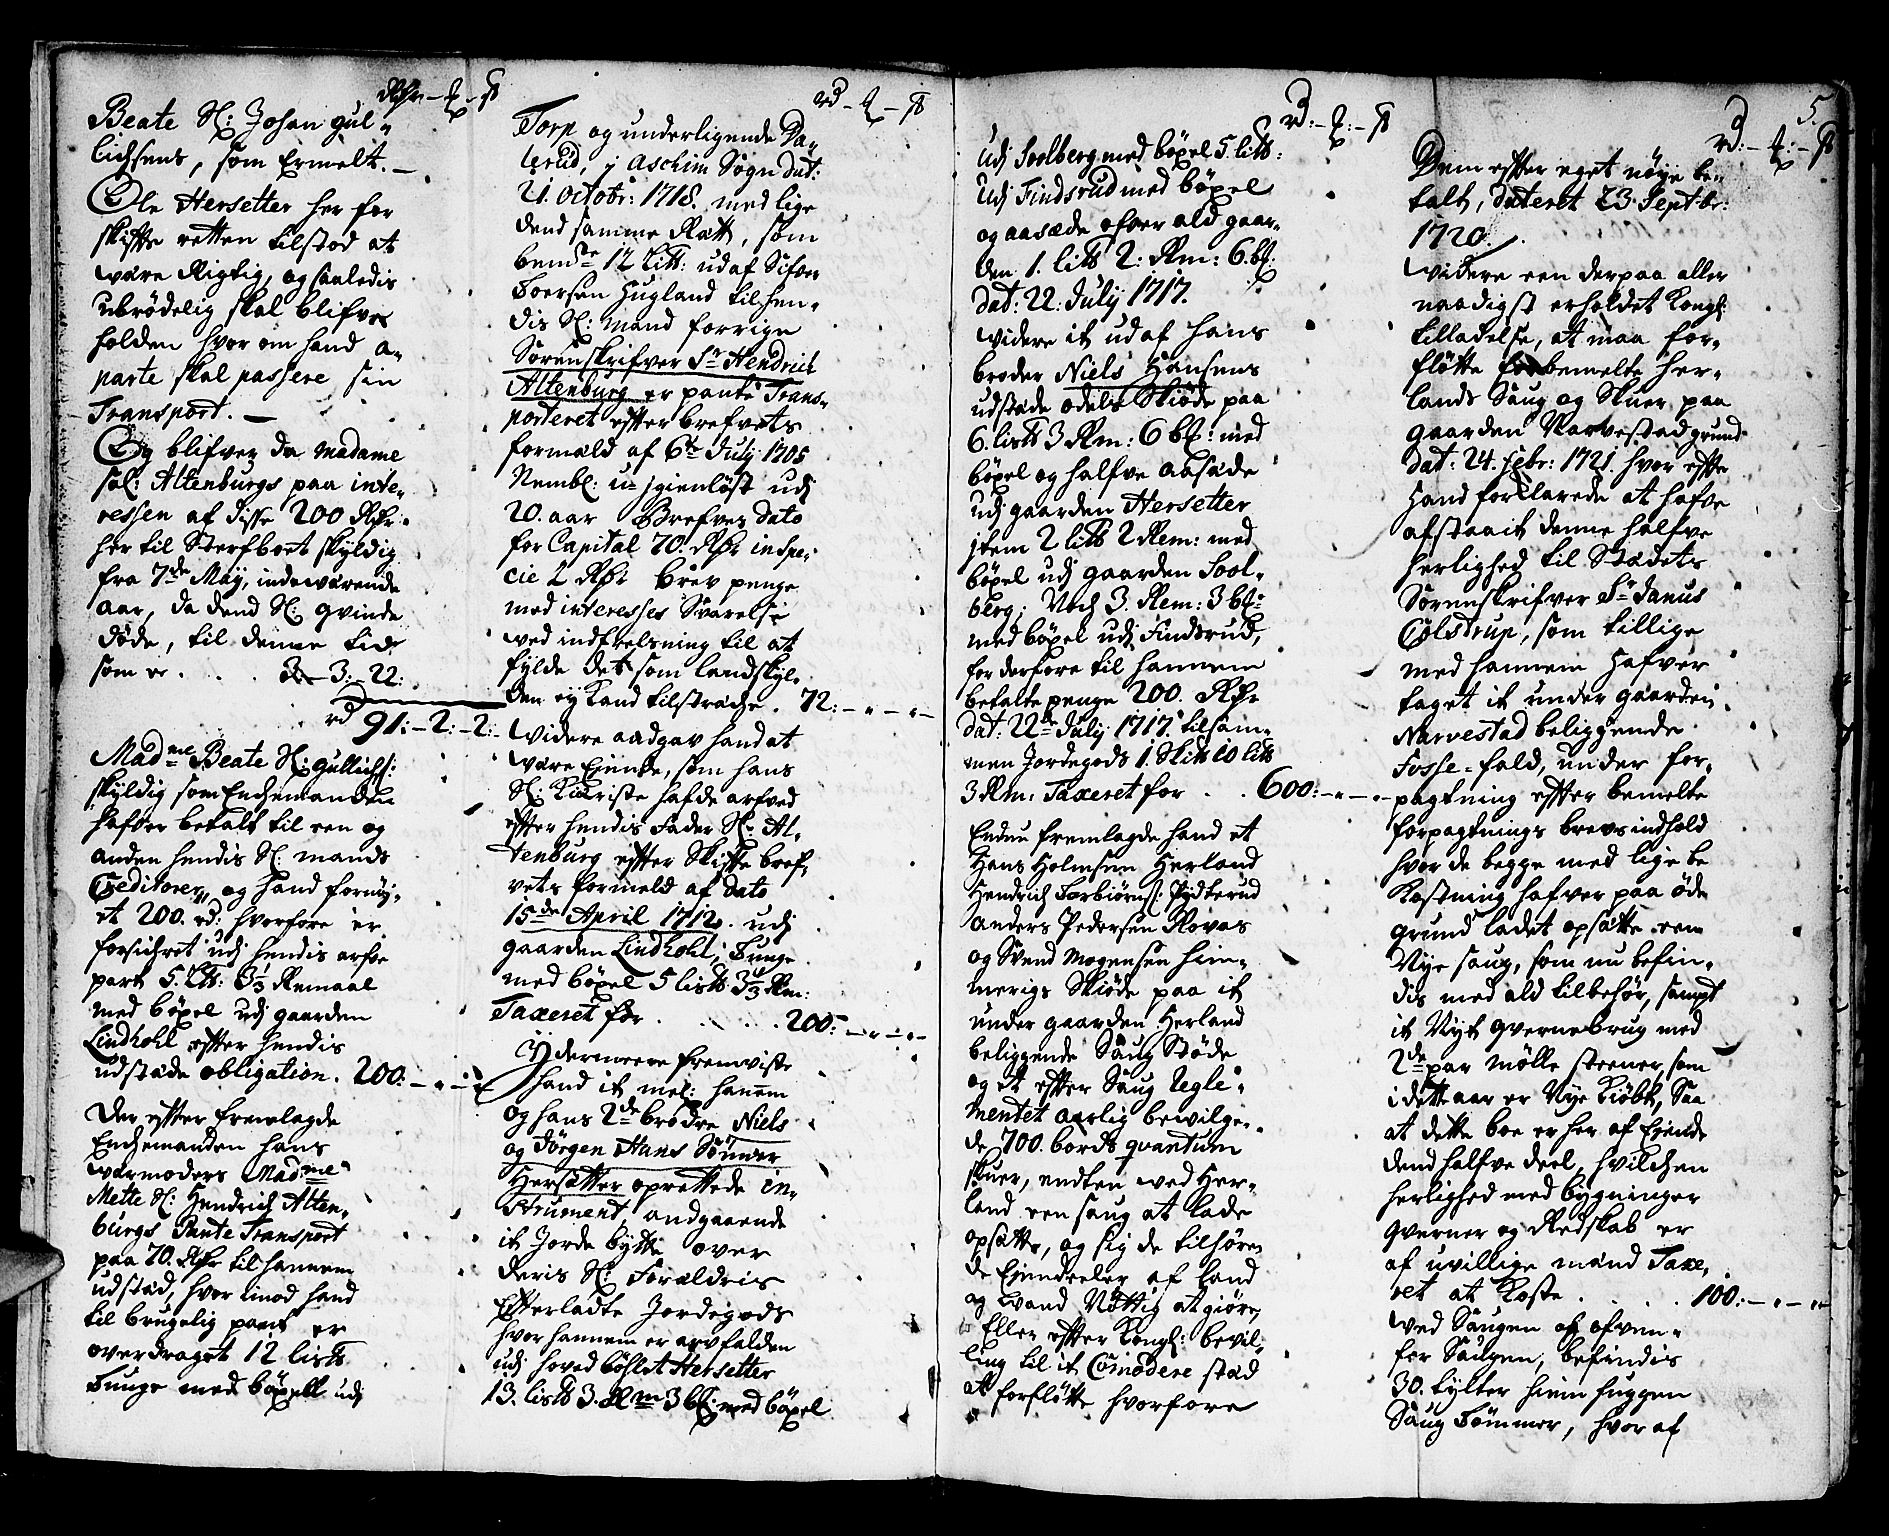 Rdr – ₰ – ß
Beate Sl: Johan gul„
lichsens, som Ermelt. –
Ole Hersetter her for
skifte retten tilstod at
være Rigtig, og saaledis
ubrødelig skal blifve
holden hvor om hand a„
parte skal passere sin
Transport. –
Og blifver da Madame
Sal: Altenburgs paa inte„
ressen af disse 200 Rdr:
her til Sterfboet skyldig
fra 7de May, indeværende
aar, da dend Sl: qvinde
døde, til denne tid
som er . . . . 3: – 22:
rd 91: – 2: – 2:
Madme Beate Sl: Gullichs:
skyldig som Enchemanden
hafver betalt til een og
anden hendis Sl: mands
Creditorer, og hand fornøy„
et 200. rd: hvorfore er
forsichret udj hendis arfve
part 5. Ltt: 3⅓ Remaal
med bøxel udj gaarden
Lindhohl efter hendis
udstæde obligation. 200: – „ – „
Der efter fremlagde
Enchemanden hans
Wærmoders Madme
Mette Sl: Hendrich Alten„
burgs Pante Transport
paa 70. Rdr til hannem
udstæd, hvor imod hand
til brugelig pant er
overdraget 12 lis℔
Tunge med bøxell udj
rd – ₰ – ß
Torp og underligende Da„
lerud, j Aschim Sogn dat:
21. octobr: 1718. med lige
dend samme Rætt, som
bemte 12 Litt: ud af Sifver
Toersen Hugland til hen„
dis Sl: Mand forrige
Sørenskrifver Sr Hendrich
Altenburg er pante Trans„
porteret efter brefvets
formæld af 6te July 1705
Nembl: u„jgienløst udj
20. aar Brefves dato
for Capital 70. Rdr in Spe„
cie 2 Rdr brev penge
med interesses Svarelse
ved indfrelsning til at
fylde det som landskyl„
den ey kand tilstræche. 72: – „ – „
Widere aadgav hand at
være Eiende, som hans
Sl: Kieriste hafde arfved
efter hendis Fader Sl: Al„
tenburg efter Skifte bref„
vets formeld af dato
15de April 1712. udj
gaarden Lindhohl, Tunge
med bøxel 5 lis℔ 3⅓ Rm:
Taxeret for . . . . . 200: – „ – „
Ydermeere fremviste
hand it mel: hanem
og hans 2de brødre Niels
og Jørgen Hans Sønner
Hersætter oprettede in„
strument, andgaaende
it Jorde bytte over
deris Sl: Forældris
Efterladte Jordegods
hvor hannem er arv falden
udj hoved bøhlet Hersetter
13. lisℓ 3. Rm 3 bs: med bøxel
rd: – ₰: – ß
Udj Soelberg med bøxel 5. litt:
Udj Findsrud med bøxel
og aasæde ofver ald gaar„
den 1. litt 2: Rm: 6. bs.
dat: 22. July 1717.
widere it ud af hans
broder Niels Hansens
udstæde odels Skiøde paa
6. lisℓ 3 Rm: 6 bs: med
bøxel og halfve aasæde
udj gaarden Hersetter
jtem 2 litt 2 Rem: med
bøxel udj gaarden Sool„
berg; Noch 3. Rem: 3 bs:
med bøxel udj Findsrud,
for derfore til hannem
betalte penge 200. Rdr
dat: 22de July 1717. tilsam„
men Jordegods 1. Skitt 10 litt
3 Rm: Taxeret for . . 600: – „ – „
Endnu fremlagde hand et
Hans Holmsen Herland
Hendrich Torbiørns: Pydterud
Anders Pedersen Rovas
og Svend Mogensen Him„
merigs Skiøde paa it
under gaarden Herland
beliggende Saug Støde
og et efter Saug Regle„
mentet aarlig bevilge„
de 700. bords qvantum
skuer, endten ved Her„
land een saug at lade
opsætte, og sig de tilhøren
de Eiendeeler af land
og vand Nøttig at giøre,
Eller efter Kongl: bevil„
ling til it Comodere stæd
at forfløtte hvorfore
5.
rd: – ₰: – ß
Dem efter eget nøye be„
talt, dateret 23. Septbr:
1720.
widere een derpaa aller
naadigst erholdet Kongl:
tilladelse, at maa for„
fløtte bemelte Her„
lands Saug og Skuer paa
gaarden Narvestad grund
dat: 24. febr: 1721. hvor efter
Hand forklarede at hafve
afstaait denne halfve
herlighed til Stædets
Sørenskrifver Sr Janus
Colstrup, som tillige
med hannem hafver
taget it under gaarden
Narvestad beliggende
Fosse-fald, under for„
pagtning efter bemelte
forpagtnings brevs indhold
hvor de begge med lige be
kostning hafver paa øde
grund ladet opsætte een
Nye saug, som nu befin„
dis med ald tilbehør, sampt
it Nyt qvernebrug med
2de par mølle steener, som
i dette aar er Nye kiøbt, Saa
at dette boe er her af Eiende
dend halfve deel, hvilchen
herlighed med bygninger
qverner og Redskab er
af uvillige mænd Taxe„
ret at koste . . . . 100: – „ – „
wed Saugen og ofven„
for Saugen, befindis
30. tylter hiem huggen
Saug Tømmer, hvor af